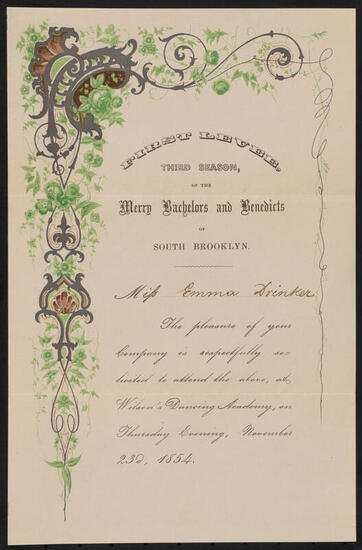 FIRST LEVEE,
THIRD SEASON,
OF THE
Merry Bachelors and Benedicts
OF
SOUTH BROOKLYN.
Miss Emma Drinker
The pleasure of your
Company is respectfully so-
licited to attend the above, at
Wilson's Dancing Academy, on
Thursday Evening, November
23d, 1854.